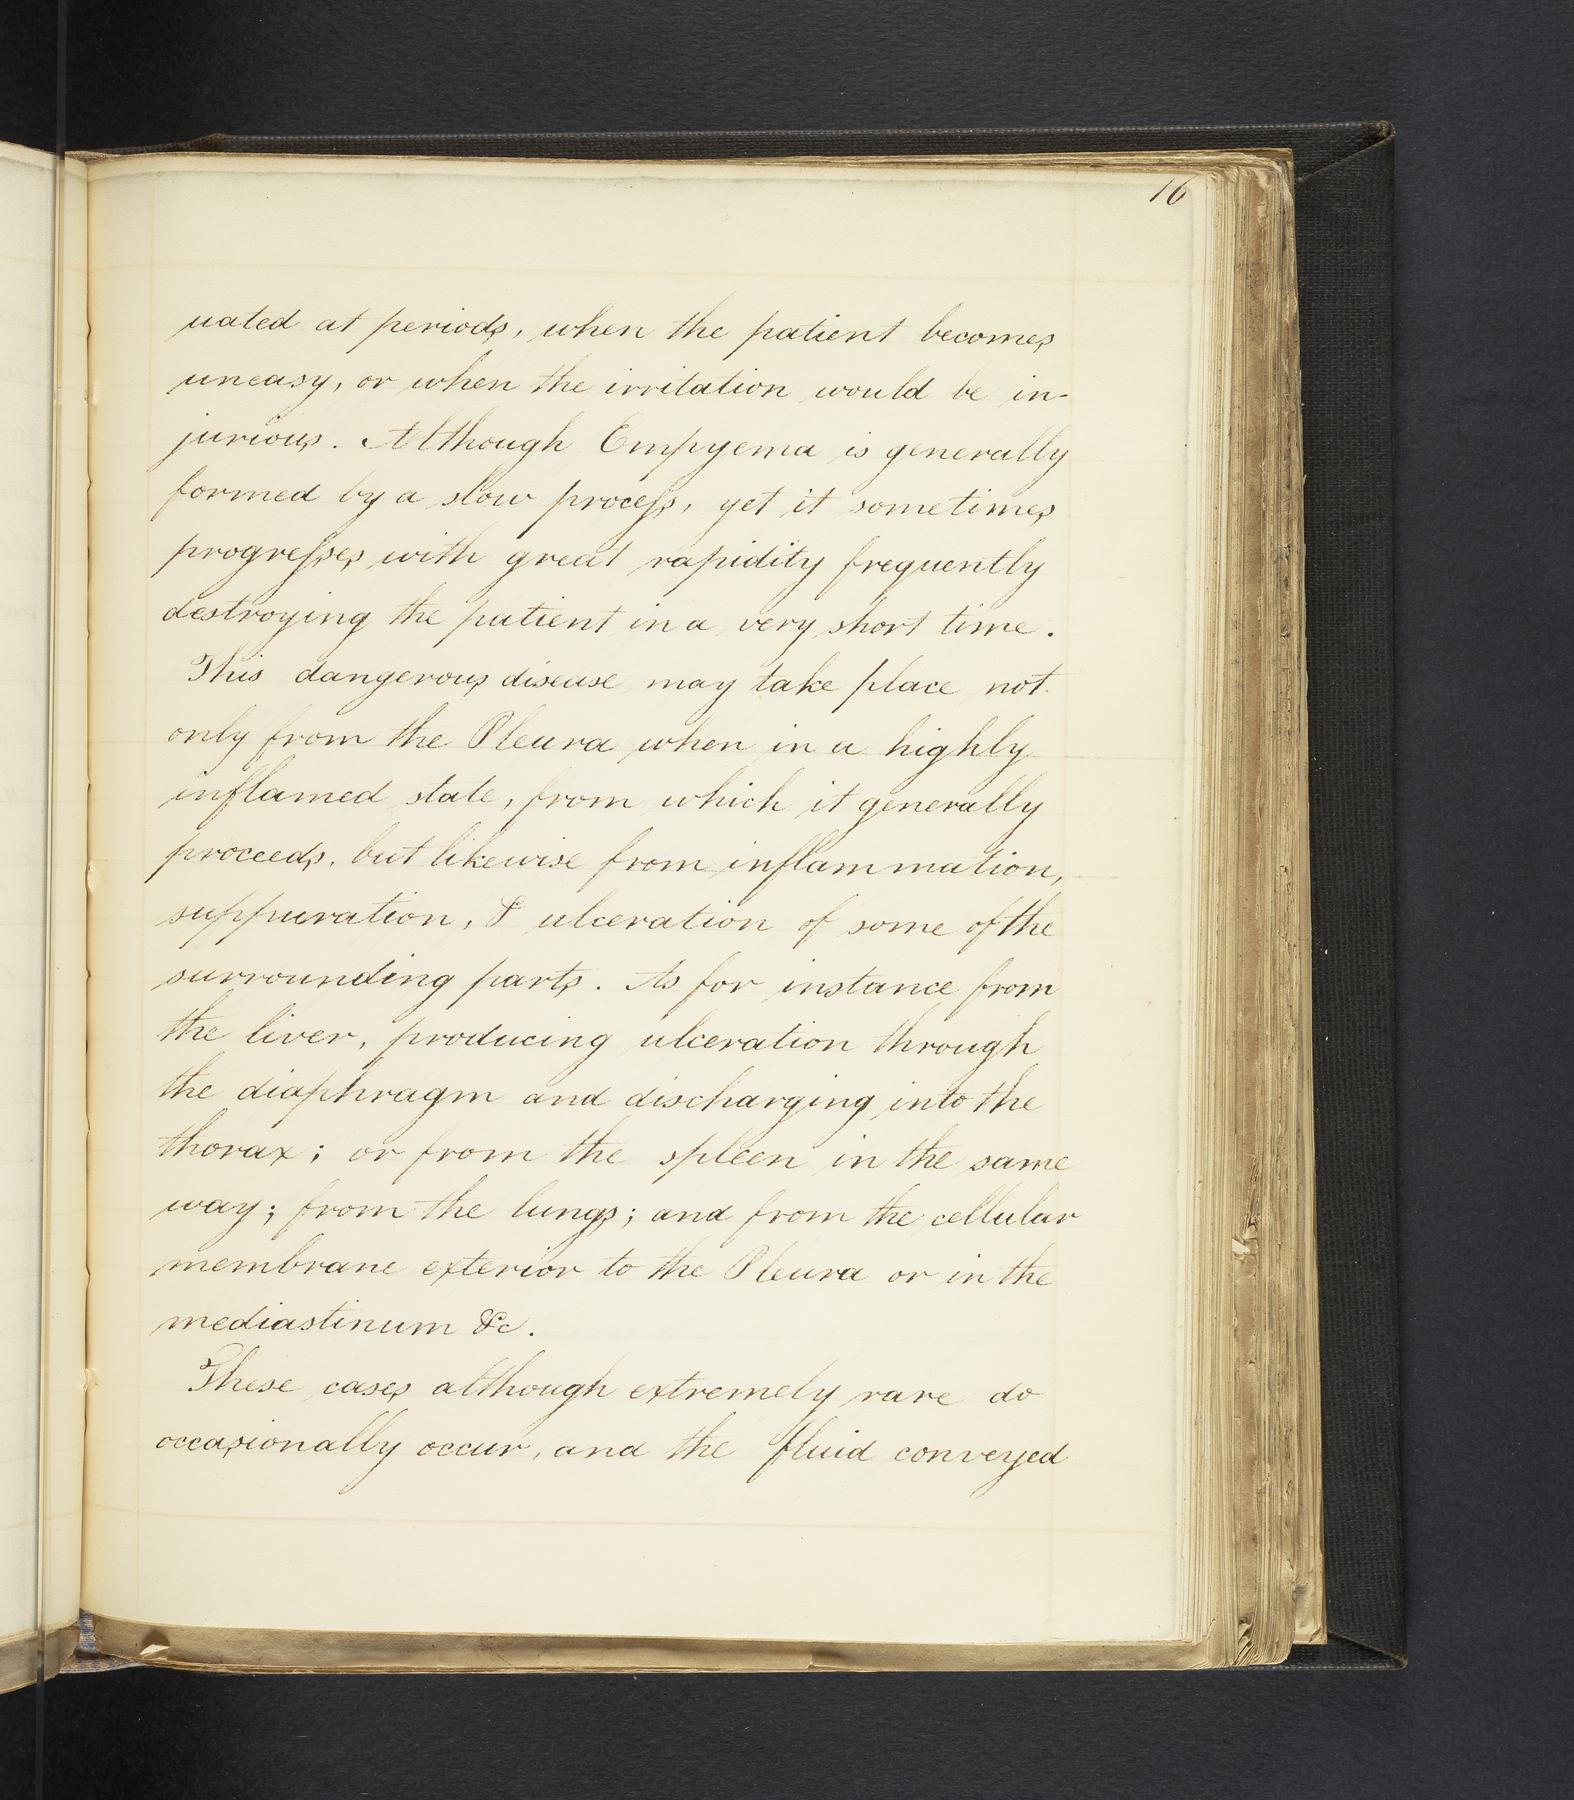 16
uated at periods, when the patient becomes
uneasy, or when the irritation would be in-
jurious. Although Empyema is generally
formed by a slow process, yet it sometimes
progresses with great rapidity frequently
destroying the patient in a very short time.
This dangerous disease may take place not
only from the Pleura when in a highly
inflamed state, from which it generally
proceeds, but likewise from inflammation,
suppuration, & ulceration of some of the
surrounding parts. As for instance from
the liver, producing ulceration through
the diaphragm and discharging into the
thorax; or from the spleen in the same
way; from the lungs; and from the cellular
membrane exterior to the Pleura or in the
mediastinum &c.
These cases although extremely rare do
occasionally occur, and the fluid conveyed